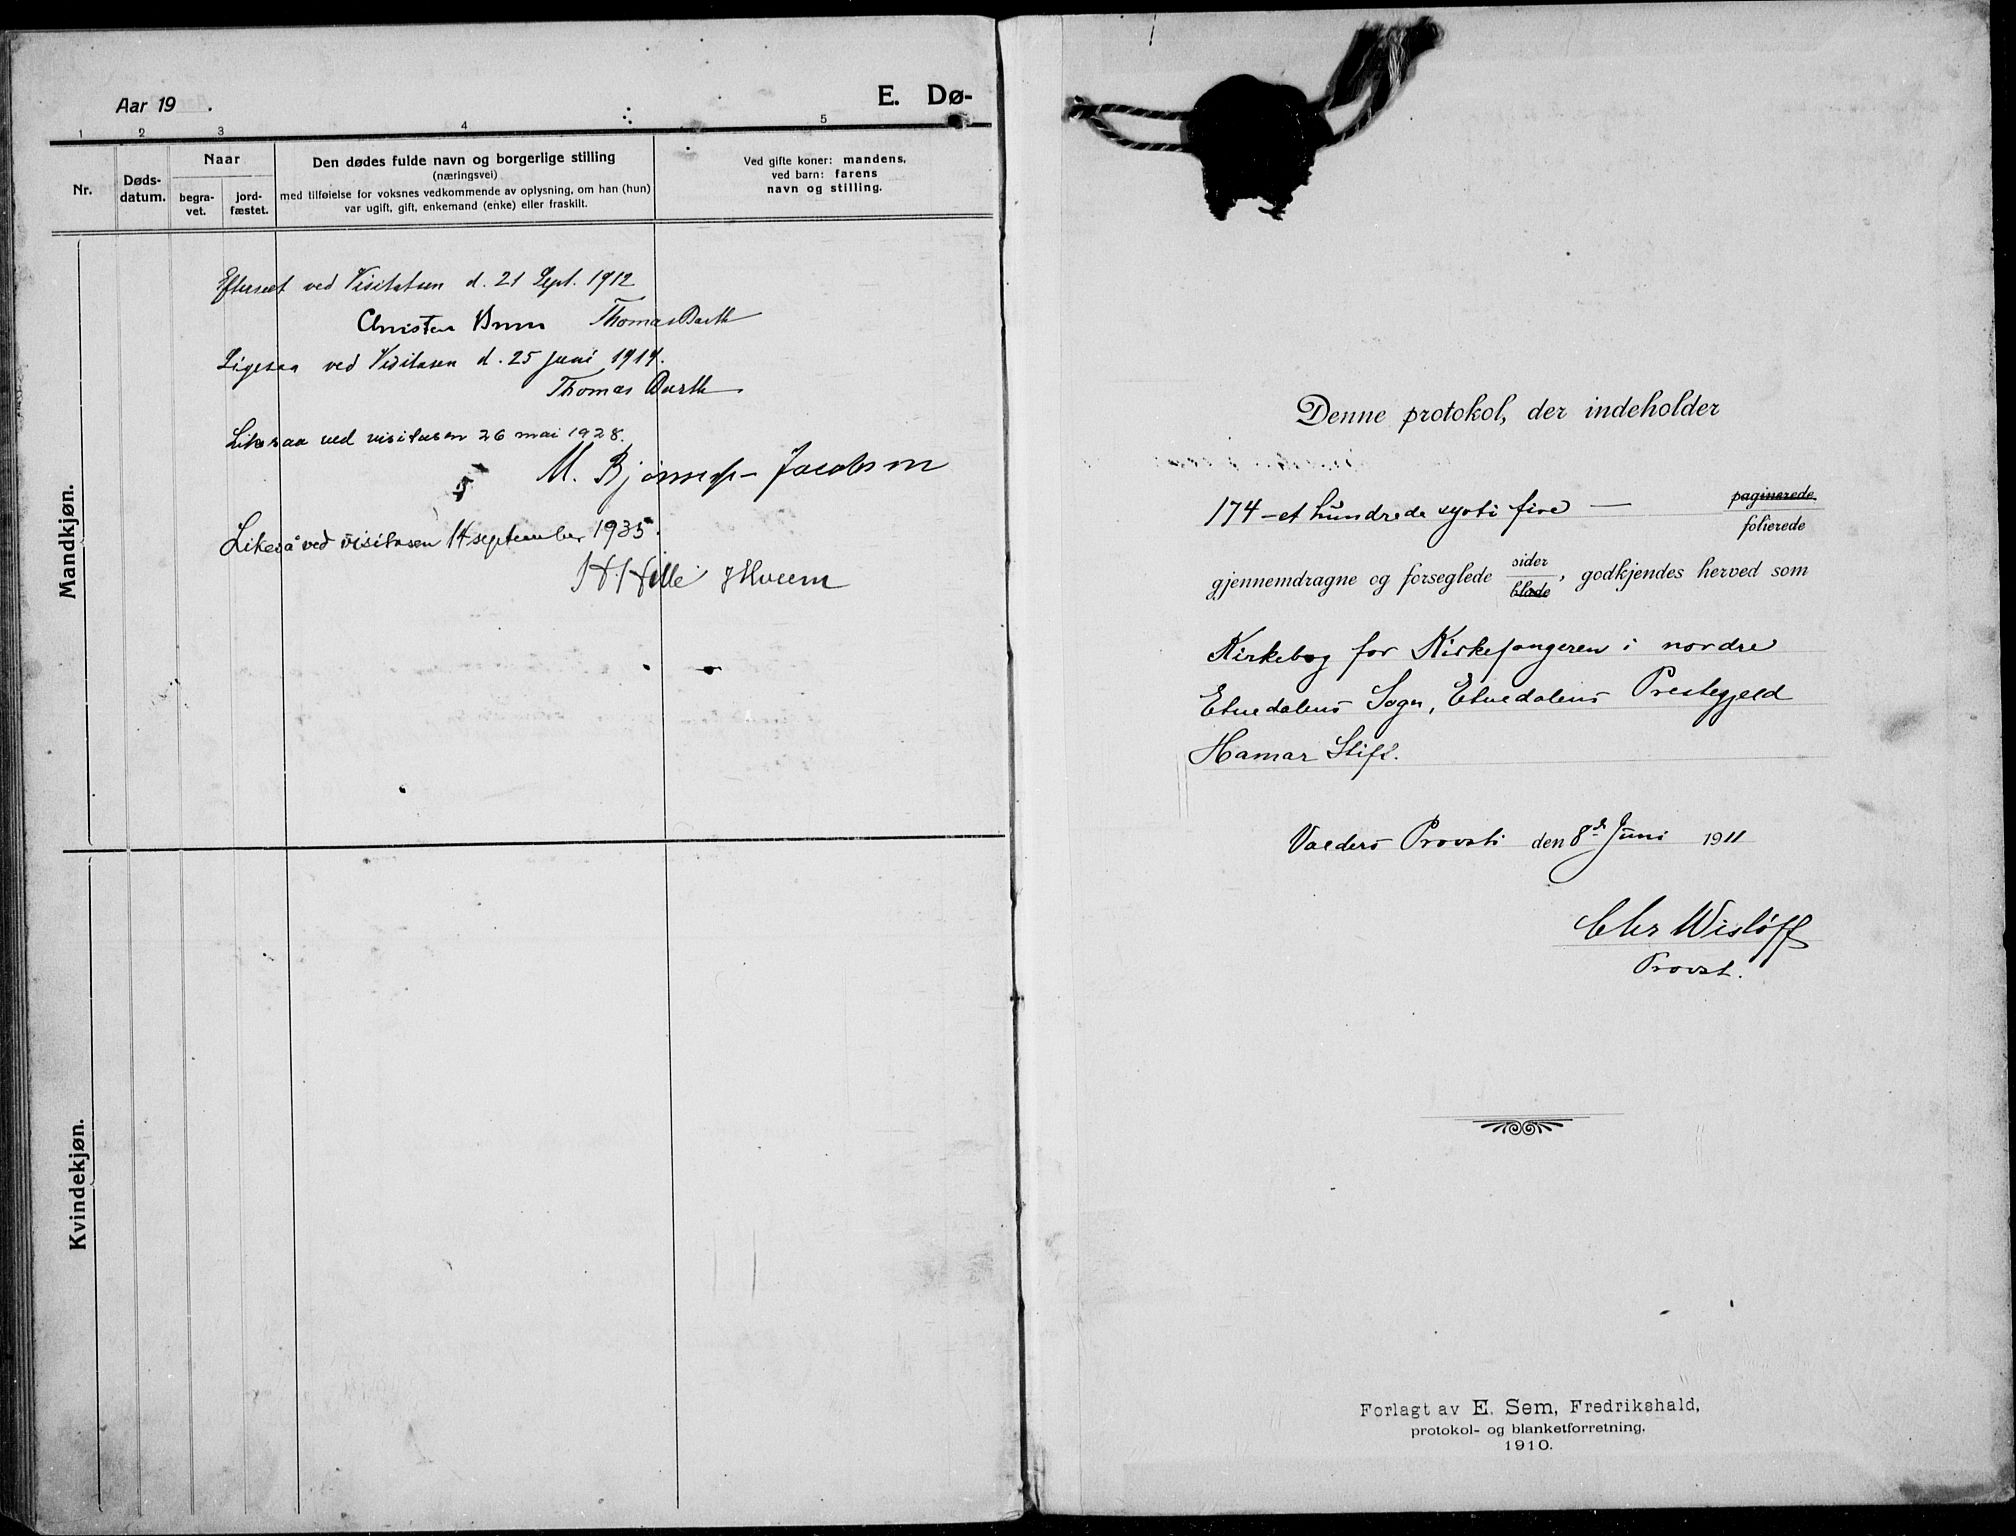 Aar 19 .
E. Dø-
1 2 3 4 5
Nr.
Døds-
datum.
Naar
begra-
vet.
jord-
fæstet.
Den dødes fulde navn og borgerlige stilling
(næringsvei)
med tilføielse for voksnes vedkommende av oplysning, om han (hun)
var ugift, gift, enkemand (enke) eller fraskilt.
Ved gifte koner: mandens,
ved barn: farens
navn og stilling.
Mandkjøn.
Efterseet ved Visitatsen d. 21 Sept. 1912
Christen Brun Thomas Barth
Ligesaa ved Visitasen d. 25 juni 1919.
Thomas Barth
Likesaa ved visitasen 26 mai 1928.
M. Bjønness-Jacobsen
Likeså ved visitasen 14 september 1935.
H Hille
Kvindekjøn.
Denne protokol, der indeholder
174 - et hundrede sytti fire —
paginerede
folierede
gjennemdragne og forseglede sider
blade, godkjendes herved som
Kirkebog for Kirkesangeren i nordre
Etnedalens Sogn, Etnedalens Prestegjeld
Hamar Stift.
Valders Provsti den 8de Juni 1911
Chr Wisløff
Provst.
Forlagt av E. Sem, Fredrikshald,
protokol- og blanketforretning.
1910.